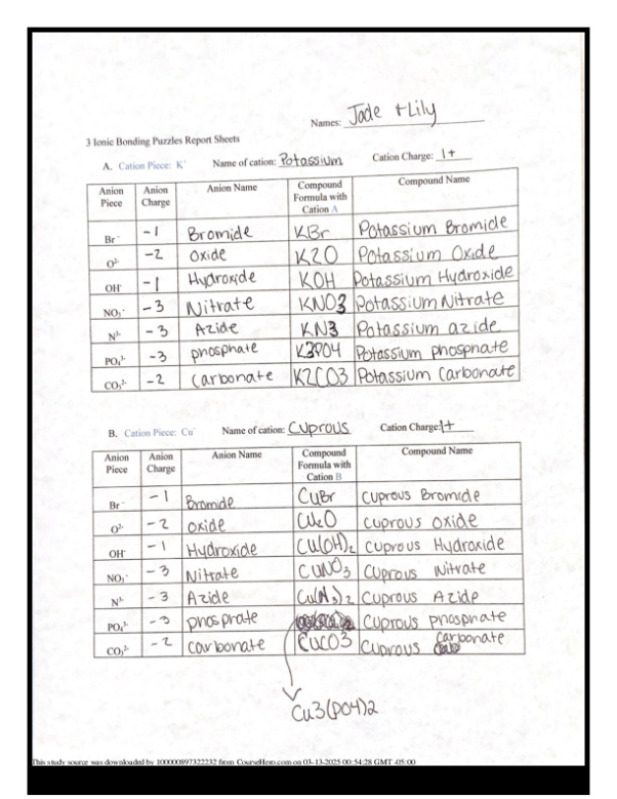 Names: Jade + Lily
3 Ionic Bonding Puzzles Report Sheets
A. Cation Piece: K⁺ Name of cation: Potassium Cation Charge: 1+
Anion Piece Anion Charge Anion Name Compound Formula with Cation A Compound Name
Br⁻ -1 Bromide KBr Potassium Bromide
O²⁻ -2 Oxide K2O Potassium Oxide
OH⁻ -1 Hydroxide KOH Potassium Hydroxide
NO₃⁻ -3 Nitrate KNO3 Potassium Nitrate
N³⁻ -3 Azide KN3 Potassium azide
PO₄³⁻ -3 phosphate K3PO4 Potassium phosphate
CO₃²⁻ -2 Carbonate K2CO3 Potassium Carbonate
B. Cation Piece: Cu⁺ Name of cation: Cuprous Cation Charge: 1+
Anion Piece Anion Charge Anion Name Compound Formula with Cation B Compound Name
Br⁻ -1 Bromide CuBr Cuprous Bromide
O²⁻ -2 Oxide Cu₂O Cuprous Oxide
OH⁻ -1 Hydroxide Cu(OH)₂ Cuprous Hydroxide
NO₃⁻ -3 Nitrate CuNO₃ Cuprous Nitrate
N³⁻ -3 Azide Cu(N₃)₂ Cuprous Azide
PO₄³⁻ -3 phosphate Cuprous phosphate
CO₃²⁻ -2 Carbonate CuCO3 Cuprous Carbonate
Cu3(PO4)2
This study source was downloaded by 100000897322232 from CourseHero.com on 03-13-2025 00:54:28 GMT -05:00